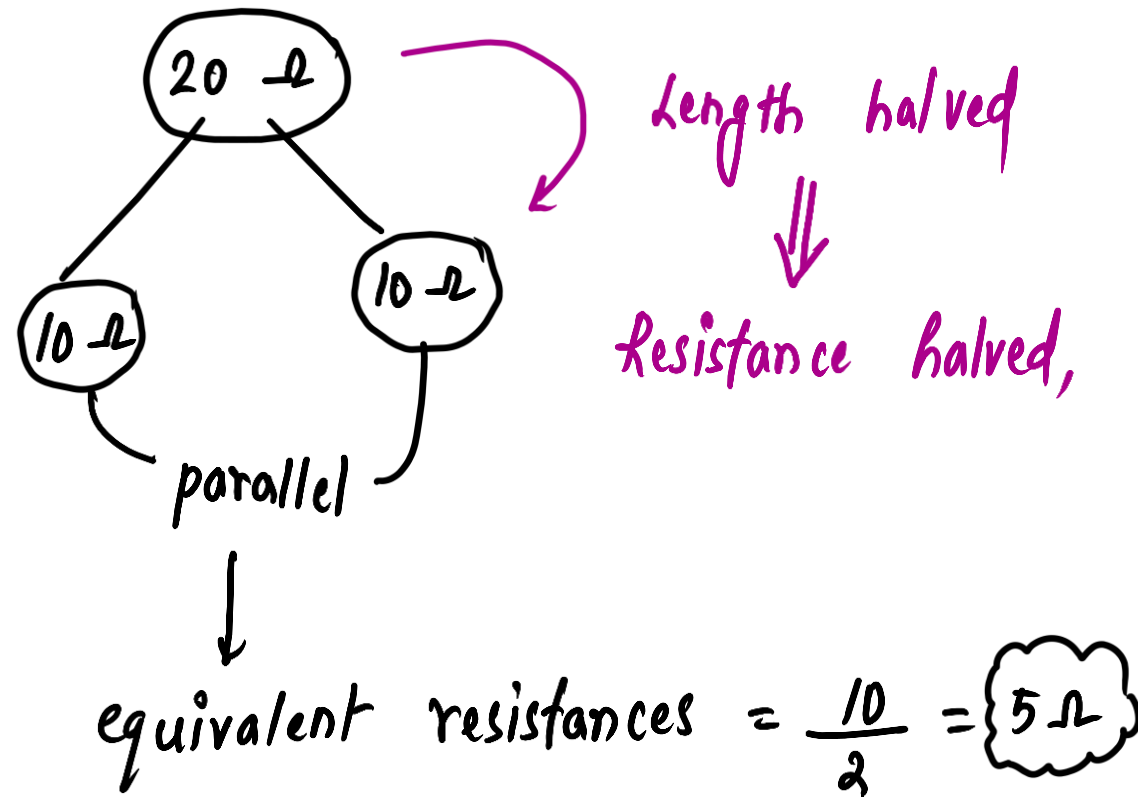 20 Ω
Length halved
⇓
10 Ω
10 Ω
Resistance halved,
parallel
↓
equivalent resistances = 10/2 = 5 Ω